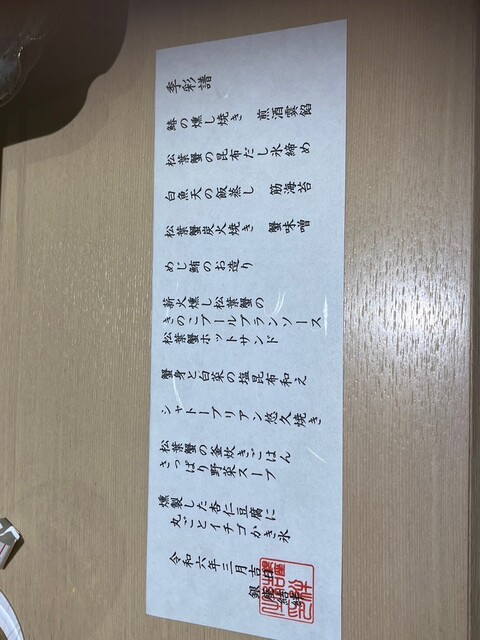 季彩譜
鰆の燻し焼き　煎酒霙餡
松葉蟹の昆布だし氷締め
白魚天の飯蒸し　筋海苔
松葉蟹炭火焼き　蟹味噌
めじ鮪のお造り
薪火燻し松葉蟹の
きのこブールブランソース
松葉蟹ホットサンド
蟹身と白菜の塩昆布和え
シャトーブリアン悠久焼き
松葉蟹の釜炊きごはん
さっぱり野菜スープ
燻製した杏仁豆腐に
丸ごとイチゴかき氷
令和六年三月吉日
銀座